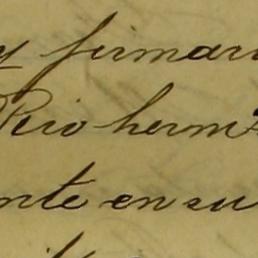 y firmar
Pero herm
nte en su